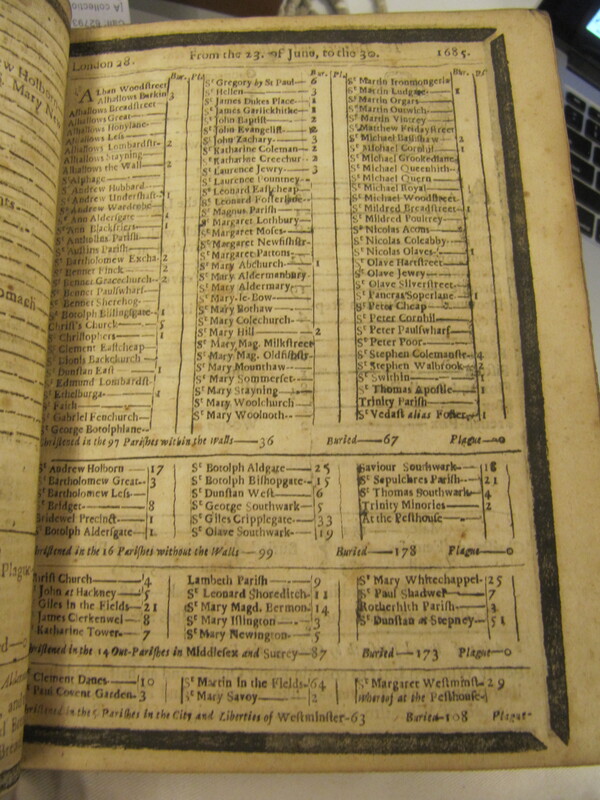 London 28. From the 23. of June, to the 30. 1685.
Bur. Pl.
Alban Woodstreet
Alhallows Barkin 3
Alhallows Breadstreet
Alhallows Great
Alhallows Honylane
Alhallows Less
Alhallows Lombardstr 2
Alhallows Stayning
Alhallows the Wall 2
St Alphage
St Andrew Hubbard
St Andrew Undershaft 1
St Andrew Wardrobe
St Ann Aldersgate 1
St Ann Blackfriers 1
St Antholins Parish
St Austins Parish
St Bartholomew Excha. 2
St Bennet Finck 2
St Bennet Gracechurch 2
St Bennet Paulswharf
St Bennet Sherehog
St Botolph Billingsgate 1
Christ's Church 5
St Christophers 1
St Clement Eastcheap
St Dionis Backchurch
St Dunstan East 1
St Edmund Lombardst
St Ethelburga 1
St Faith
St Gabriel Fenchurch
St George Botolphlane
Bur. Pl.
St Gregory by St Paul 6
St Hellen 3
St James Dukes Place 1
St James Garlickhithe
St John Baptist 2
St John Evangelist
St John Zachary 3
St Katharine Coleman 2
St Katharine Creechur 2
St Laurence Jewry 3
St Laurence Pountney
St Leonard Eastcheap
St Leonard Fosterlane
St Magnus Parish
St Margaret Lothbury
St Margaret Moses
St Margaret Newfishstr
St Margaret Pattons
St Mary Abchurch 1
St Mary Aldermanbury
St Mary Aldermary
St Mary-le-Bow
St Mary Bothaw
St Mary Colechurch
St Mary Hill 2
St Mary Mag. Milkstreet
St Mary Mag. Oldfishstr
St Mary Mounthaw
St Mary Sommerset
St Mary Stayning
St Mary Woolchurch
St Mary Woolnoth
Bur. Pl.
St Martin Ironmongerla
St Martin Ludgate 1
St Martin Orgars
St Martin Outwich
St Martin Vintrey
St Matthew Fridaystreet
St Michael Bassishaw 2
St Michael Cornhil 1
St Michael Crookedlane
St Michael Queenhith
St Michael Quern
St Michael Royal
St Michael Woodstreet
St Mildred Breadstreet 1
St Mildred Poultrey
St Nicolas Acons
St Nicolas Coleabby
St Nicolas Olaves 1
St Olave Hartstreet
St Olave Jewry
St Olave Silverstreet
St Pancras Soperlane 1
St Peter Cheap
St Peter Cornhil
St Peter Paulswharf
St Peter Poor
St Stephen Colemanstr 4
St Stephen Walbrook 2
St Swithin 1
St Thomas Apostle 1
Trinity Parish
St Vedast alias Foster 1
ristened in the 97 Parishes within the Walls 36 Buried 67 Plague 0
St Andrew Holborn 17
St Bartholomew Great 3
St Bartholomew Less
St Bridget 8
Bridewel Precinct 1
St Botolph Aldersgate 1
St Botolph Aldgate 25
St Botolph Bishopgate 15
St Dunstan West 6
St George Southwark 5
St Giles Cripplegate 33
St Olave Southwark 19
Saviour Southwark 18
St Sepulchres Parish 21
St Thomas Southwark 4
Trinity Minories 2
At the Pesthouse
ristened in the 16 Parishes without the Walls 99 Buried 178 Plague 0
hrist Church 4
John at Hackney 5
Giles in the Fields 21
James Clerkenwel 8
Katharine Tower 7
Lambeth Parish 9
St Leonard Shoreditch 11
St Mary Magd. Bermon. 14
St Mary Islington 3
St Mary Newington 5
St Mary Whitechappel 25
St Paul Shadwel 7
Rotherhith Parish 3
St Dunstan at Stepney 51
ristened in the 14 Out-Parishes in Middlesex and Surrey 87 Buried 173 Plague 0
Clement Danes 10
Paul Covent Garden 3
St Martin in the Fields 64
St Mary Savoy 2
St Margaret Westminst. 29
whereof at the Pesthouse
ristened in the 5 Parishes in the City and Liberties of Westminster 63 Buried 108 Plague